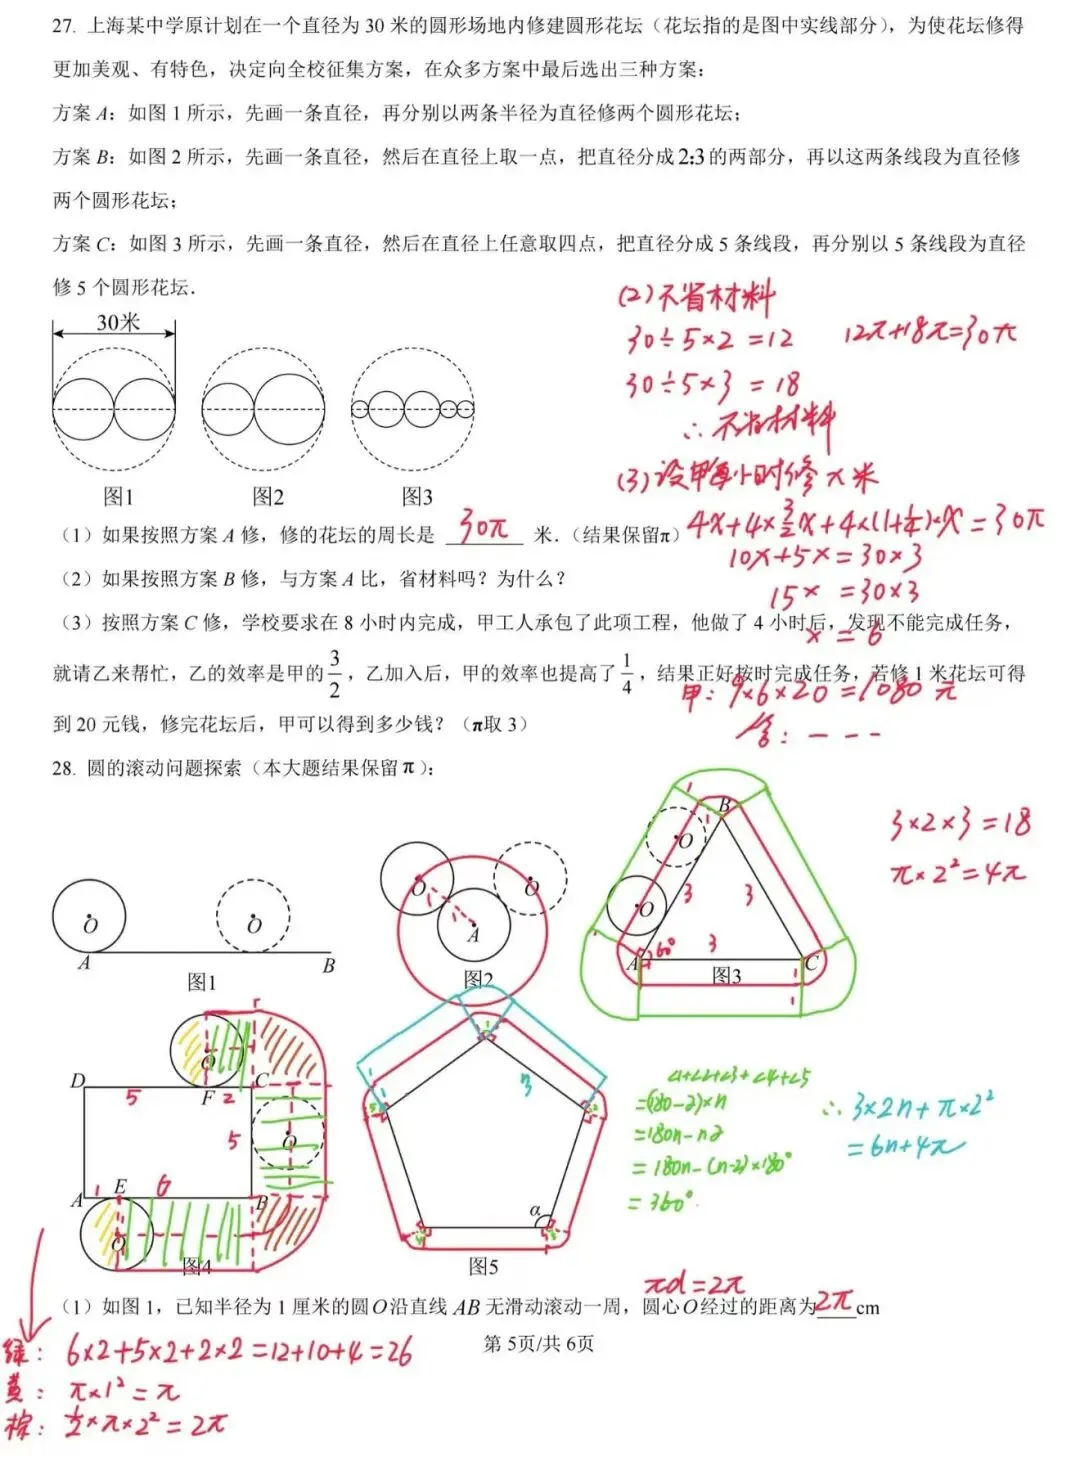 27. 上海某中学原计划在一个直径为 30 米的圆形场地内修建圆形花坛（花坛指的是图中实线部分），为使花坛修得
更加美观、有特色，决定向全校征集方案，在众多方案中最后选出三种方案：
方案 A：如图 1 所示，先画一条直径，再分别以两条半径为直径修两个圆形花坛；
方案 B：如图 2 所示，先画一条直径，然后在直径上取一点，把直径分成 2:3 的两部分，再以这两条线段为直径修
两个圆形花坛；
方案 C：如图 3 所示，先画一条直径，然后在直径上任意取四点，把直径分成 5 条线段，再分别以 5 条线段为直径
修 5 个圆形花坛．
(2) 不省材料
30÷5×2=12 12π+18π=30π
30÷5×3=18
∴不省材料
30米
图1 图2 图3
(3) 设甲每小时修x米
（1）如果按照方案 A 修，修的花坛的周长是 30π 米．（结果保留π）
4x+4×3/2x+4×(1+1/4)×x=30π
10x+5x=30×3
（2）如果按照方案 B 修，与方案 A 比，省材料吗？为什么？
15x=30×3
（3）按照方案 C 修，学校要求在 8 小时内完成，甲工人承包了此项工程，他做了 4 小时后，发现不能完成任务，
x=6
就请乙来帮忙，乙的效率是甲的3/2，乙加入后，甲的效率也提高了1/4，结果正好按时完成任务，若修 1 米花坛可得
甲：9×6×20=1080元
到 20 元钱，修完花坛后，甲可以得到多少钱？（π取 3）
答：- - -
28. 圆的滚动问题探索（本大题结果保留π）：
O O A B 图1
O O A 图2
O O A B C 3 3 3 60° 图3
3×2×3=18
π×2²=4π
D F C A E B O O O 5 2 5 1 6 图4
3 α 图5
∠1+∠2+∠3+∠4+∠5
=(180-α)×n
=180n-nα
=180n-(n-2)×180°
=360°
∴3×2n+π×2²
=6n+4π
πd=2π
（1）如图 1，已知半径为 1 厘米的圆 O 沿直线 AB 无滑动滚动一周，圆心 O 经过的距离为 2π cm
第 5页/共 6页
绿：6×2+5×2+2×2=12+10+4=26
黄：π×1²=π
棕：1/2×π×2²=2π